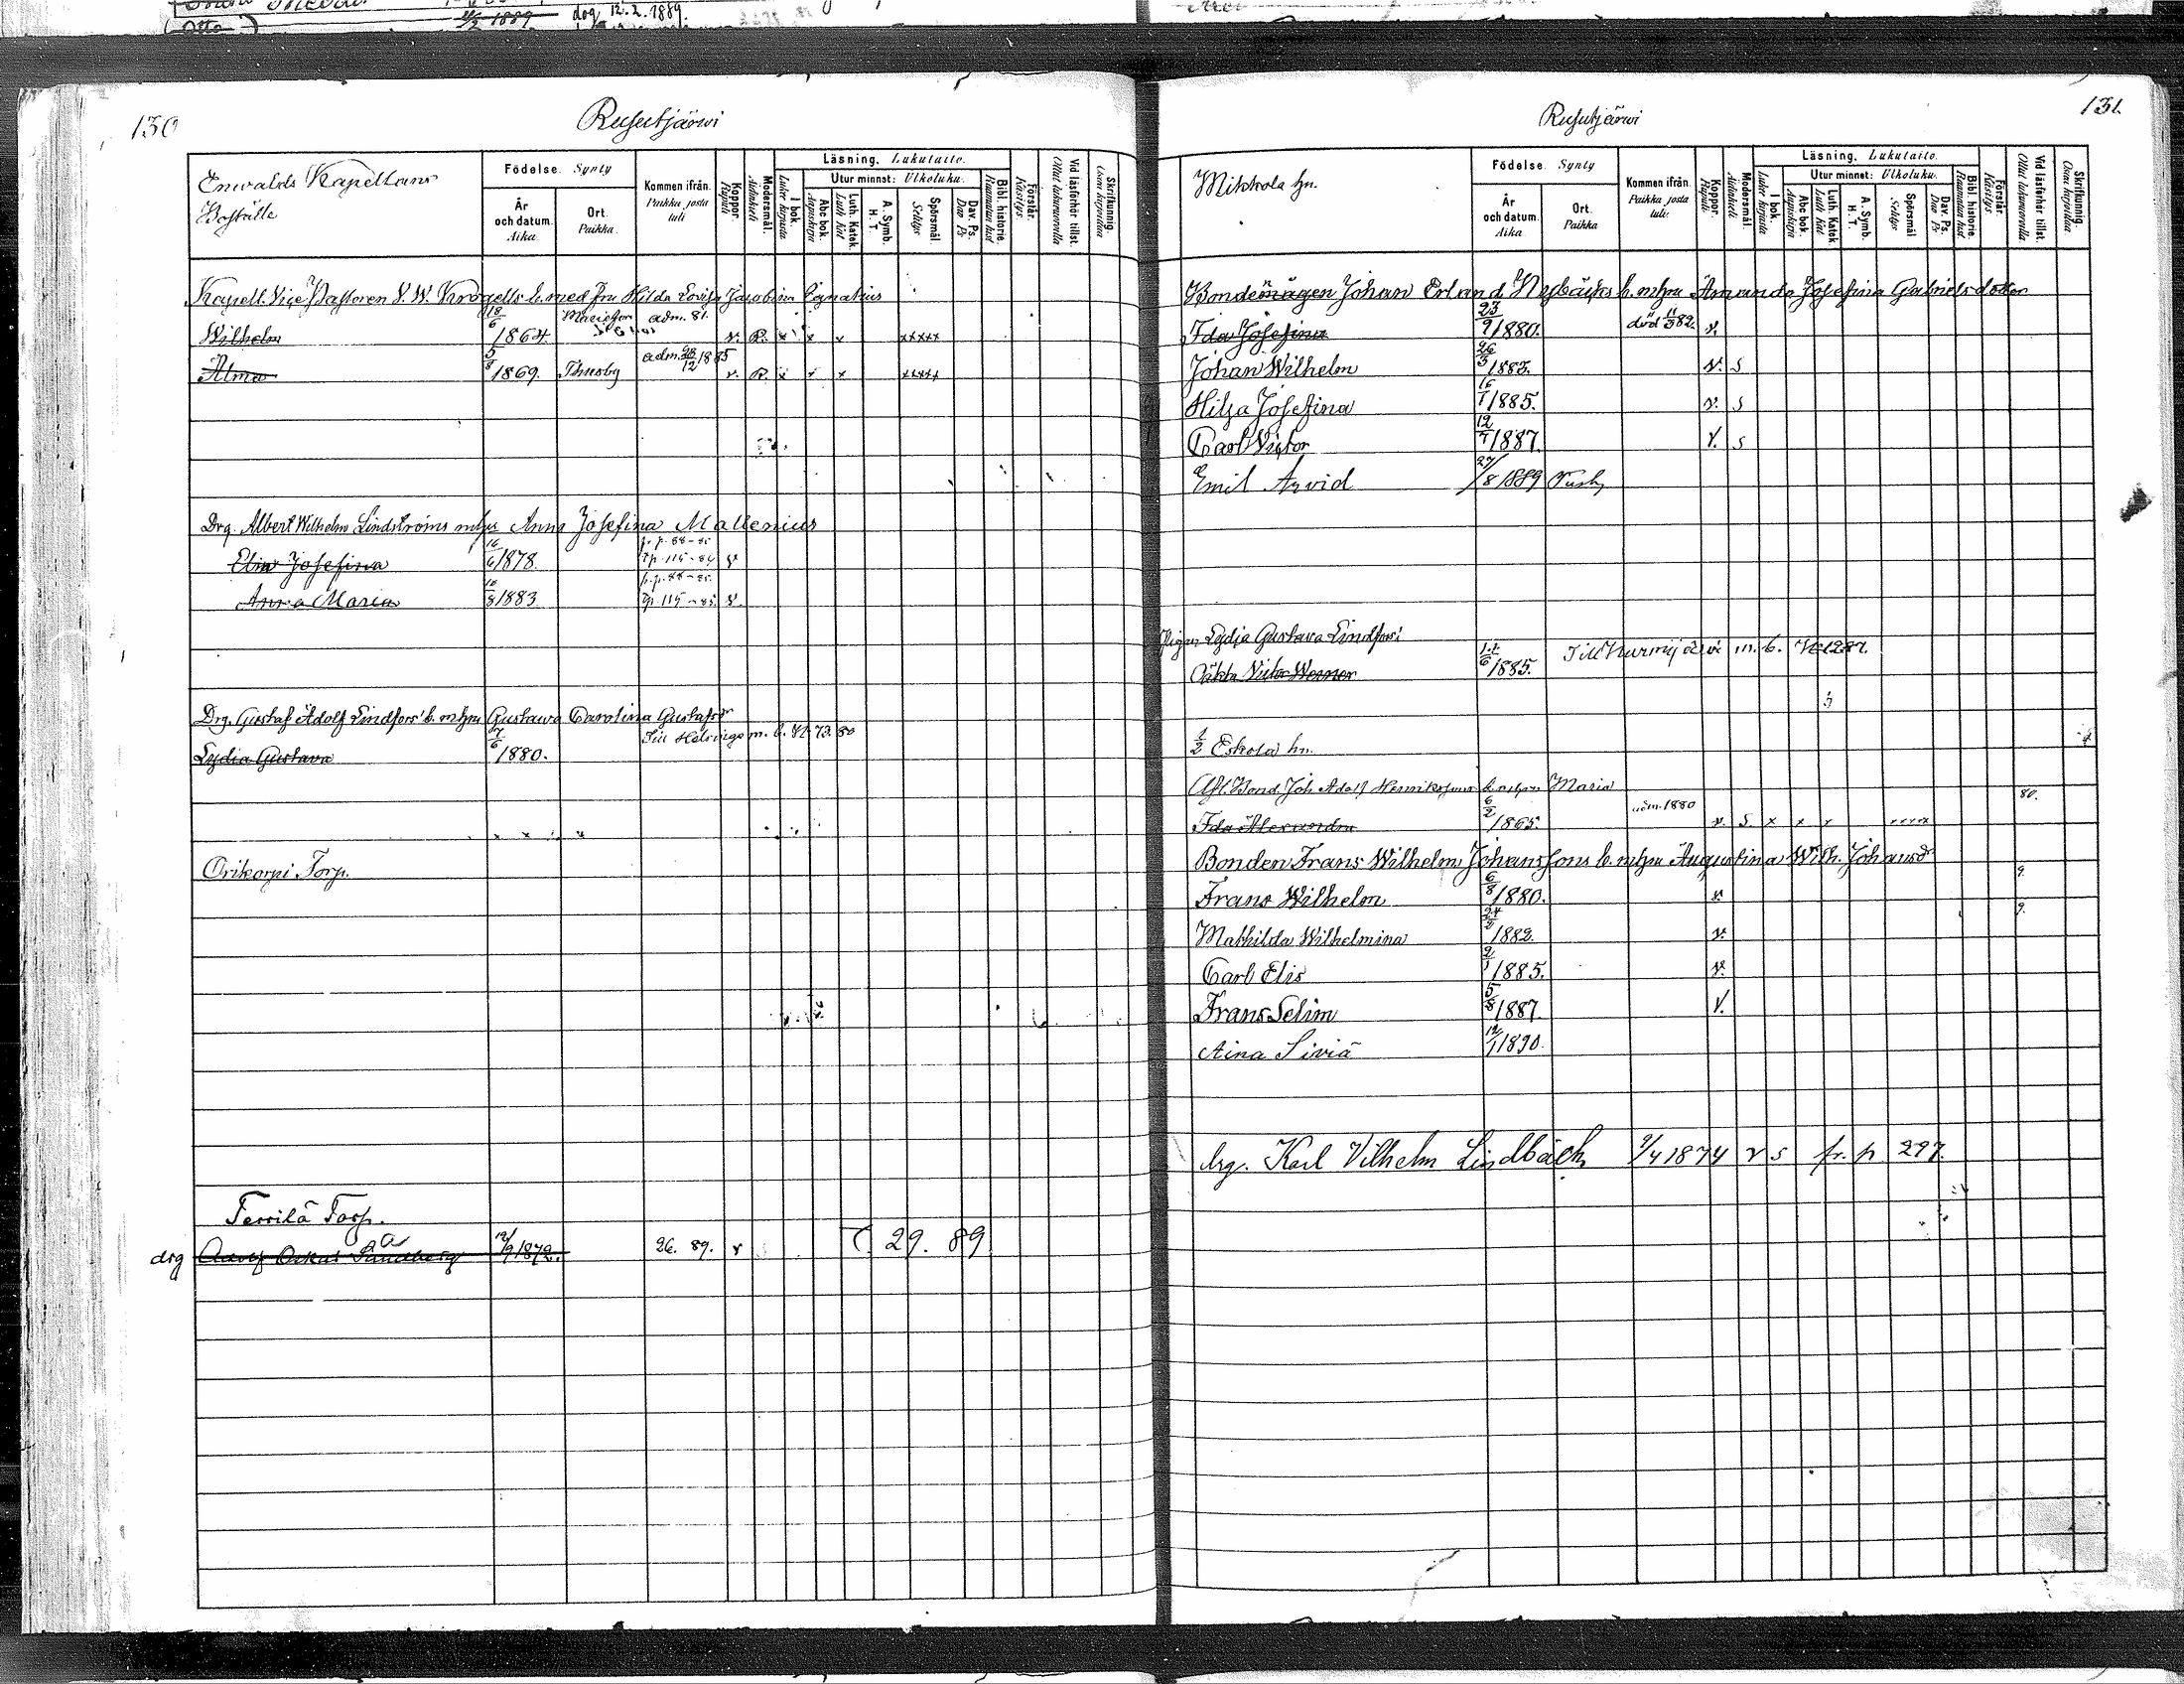 dog 12.2.1889.
Otto
130
Rusutjärwi
Enwalds Kapellans
Boställe
Födelse. Synty
År och datum. Aika.
Ort. Paikka.
Kommen ifrån. Paikka josta tuli
Koppor. Rupuli
Modersmål. Äidinkieli
Läsning. Lukutaito.
I bok. Lukee kirjasta
Utur minnet: Ulkoluku.
Abc bok. Aapiskirja
Luth. Katek. Luth Kat
A. Symb. H. T.
Spörsmål. Selitys
Dav. Ps. Daw Ps
Bibl. historie. Raamatun hist
Förstår. Käsitys.
Vid läsförhör tillst. Ollut lukuwuorolla
Skrifkunnig. Osaa kirjoittaa
Kapell. Vice Pastoren V. W. Krogells b. med fru Hilda Lovisa Jacobina Ignatius
Wilhelm 18/6 1864. adm. 81. v. R. x x x xxxxx
Alma 5/8 1869. Thusby adm. 1885 v. R. x x x xxxxx
Drg. Albert Wilhelm Lindströms mhu Anna Josefina Mallenius
Elin Josefina 16/6 1878. fr. p. 88-85 Tp. 115-84 v
Anna Maria 10/8 1883 fr. p. 88-85. Tp. 115-85. v.
Drg. Gustaf Adolf Lindfors' b. mhu Gustawa Carolina Gustafsdr
Lydia Gustava 7/6 1880. Till Helsinge m. b. 82. 73. 80
Orikorpi Torp.
Terrilä Torp.
drg Adolf Oskar Sandberg 12/9 1872. 26. 89. v T. 29. 89
131.
Rusutjärwi
Mikkola hn.
Födelse. Synty
År och datum. Aika
Ort. Paikka
Kommen ifrån. Paikka josta tuli.
Koppor. Rupuli.
Modersmål. Äidinkieli
Läsning. Lukutaito.
I bok. Lukee kirjasta
Utur minnet: Ulkoluku.
Abc bok. Aapiskirja
Luth. Katek Luth Kat
A. Symb. H. T.
Spörsmål Selitys
Dav. Ps. Daw Ps
Bibl. historie. Raamatun hist
Förstår. Käsitys
Vid läsförhör tillst. Ollut lukuwuorolla
Skrifkunnig. Osaa kirjoittaa
Bondemågen Johan Erland Nybäcks b. mhu Amanda Josefina Gabrielsdotter
Ida Josefina 23/9 1880. död 11/3 82. v.
Johan Wilhelm 26/3 1883. v. s
Hilja Josefina 16/1 1885. v. s
Carl Victor 12/7 1887. v. s
Emil Arvid 27/8 1889 Tusby
Pigan Lydia Gustava Lindfors'
Oäkta Victor Werner 12/6 1885. Till Nurmijärvi m. b. 1287.
1/2 Eskola hn.
Afl. Bond. Joh. Adolf Henrikssons b. mhu Maria
Ida Alexandra 6/2 1865. adm. 1880 v. S. x x x xxxxx 80.
Bonden Frans Wilhelm Johanssons b. mhu Augustina Wilh. Johansdr
Frans Wilhelm 6/8 1880. v. 9.
Mathilda Wilhelmina 24/2 1882. v. 9.
Carl Elis 2/1 1885. v.
Frans Selim 5/8 1887 v.
Aina Siviä 12/1 1890.
drg. Karl Vilhelm Lindbäck 9/4 1874 v s fr. p 297